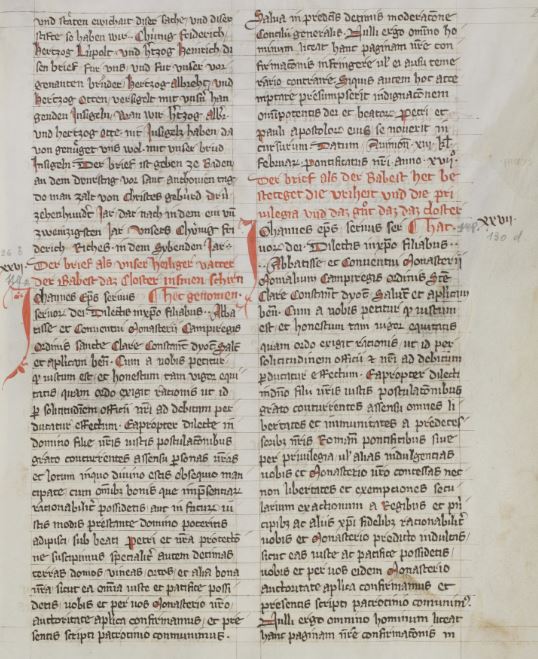 und stäten ewichait diser sache und diser
stifte so haben wir . Chünig Friderich /
hertzog Lüpolt und hertzog heinrich di
sen brief fur uns / und fur unser vor
genanten brüder / hertzog albreht / und
hertzog Otten / versigelt mit unsern han
genden Insigeln / wan wir htzog albr
und hertzog otte nit Insigels haben da
von genüget uns wol mit unser brüd
Insigeln . Der brief ist geben ze Baden
an dem
do man zalt von Christes gebürd drü
zehenhundert Jar / dar nach in dem ein un
zwenzigsten Jar / unsers Chünig fri
derich Riches / in dem Sybenden Jar .
Der brief als unser heiliger vatter
der Babest daz Closter in sinen schirn
Johannes Eps servus hat genomen .
servor dei . Dilectis in xpo filiabus . Abba
tisse et Conventui Monasterii Campiregis
Ordinis sancte Clare Constant dyoc Salt
et aplicam ben . Cum a vobis petitur
qd iustum est et honestum tam vigor equi
tatis quam ordo exigit rationis ut id
p sollicitudinem officii nri ad debitum per
ducatur effectum . Eapropter dilecte in
domino filie vris iustis postulationibus
grato concurrentes assensu personas vras
et locum in quo divino estis obsequio man
cipate cum omibus bonis que impsentiar
rationabilit possidetis aut in futur iu
stis modis prestante domino poteritis
adipisci sub beati Petri et nra protecto
ne suscipimus specialit autem decimas
terras domos vineas ortos et alia bona
vra sicut ea omia iuste et pacifice possi
detis vobis et per vos Monasterio vro
auctoritate aplica confirmamus / et pre
sentis scripti patrocinio communimus .
Salva in predcis decimis moderacone
Concilii generalis . Nulli ergo omino ho
minum liceat hanc paginam nre con
firmaconis infringere vl ei ausu teme
rario contraire Siquis autem hoc atte
mptare presumpserit indignaconem
omipotentis dei et beator Petri et
pauli apostolor eius se noverit in
cursurum . Datum Avinion . xiii . kl
Februar . pontificatus nri . anno . xvii .
Der brief als der Babest het be
stetiget die vriheit und die pri
vilegia und daz gut daz daz closter
Johannes eps . servus ser hat .
vor dei . Dilectis in xpo filiabus .
Abbatisse et Conventui Monasterii
Monialium Campiregis ordinis Ste
Clare Constant dyoc Salut et aplicam
ben . Cum a vobis petitur qd iustum
est et honestum tam vigor equitatis
quam ordo exigit rationis / ut id per
sollicitudinem officii nri ad debitum
pducatur effectum . Eapropter dilecte
in dno filie vris iustis postulationibus
grato concurrentes assensu omnes li
bertates et immunitates a predeces
soribus nris Romanis pontificibus sive
per privilegia vl alias indulgencias
vobis et Monasterio vro concessas nec
non libertates et exempciones secu
larium exactionum a Regibus et pri
cipibus ac aliis xpi fidelibus rationabilit
vobis et Monasterio predicto indultas
sicut eas iuste ac pacifice possidetis /
vobis et per vos eidem Monasterio
auctoritate aplica confirmamus et
presentis scripti patrocinio communimus .
Nulli ergo omnino hominum liceat
hanc paginam nre confirmaconis in
xxvi .
xxvii .
130 d